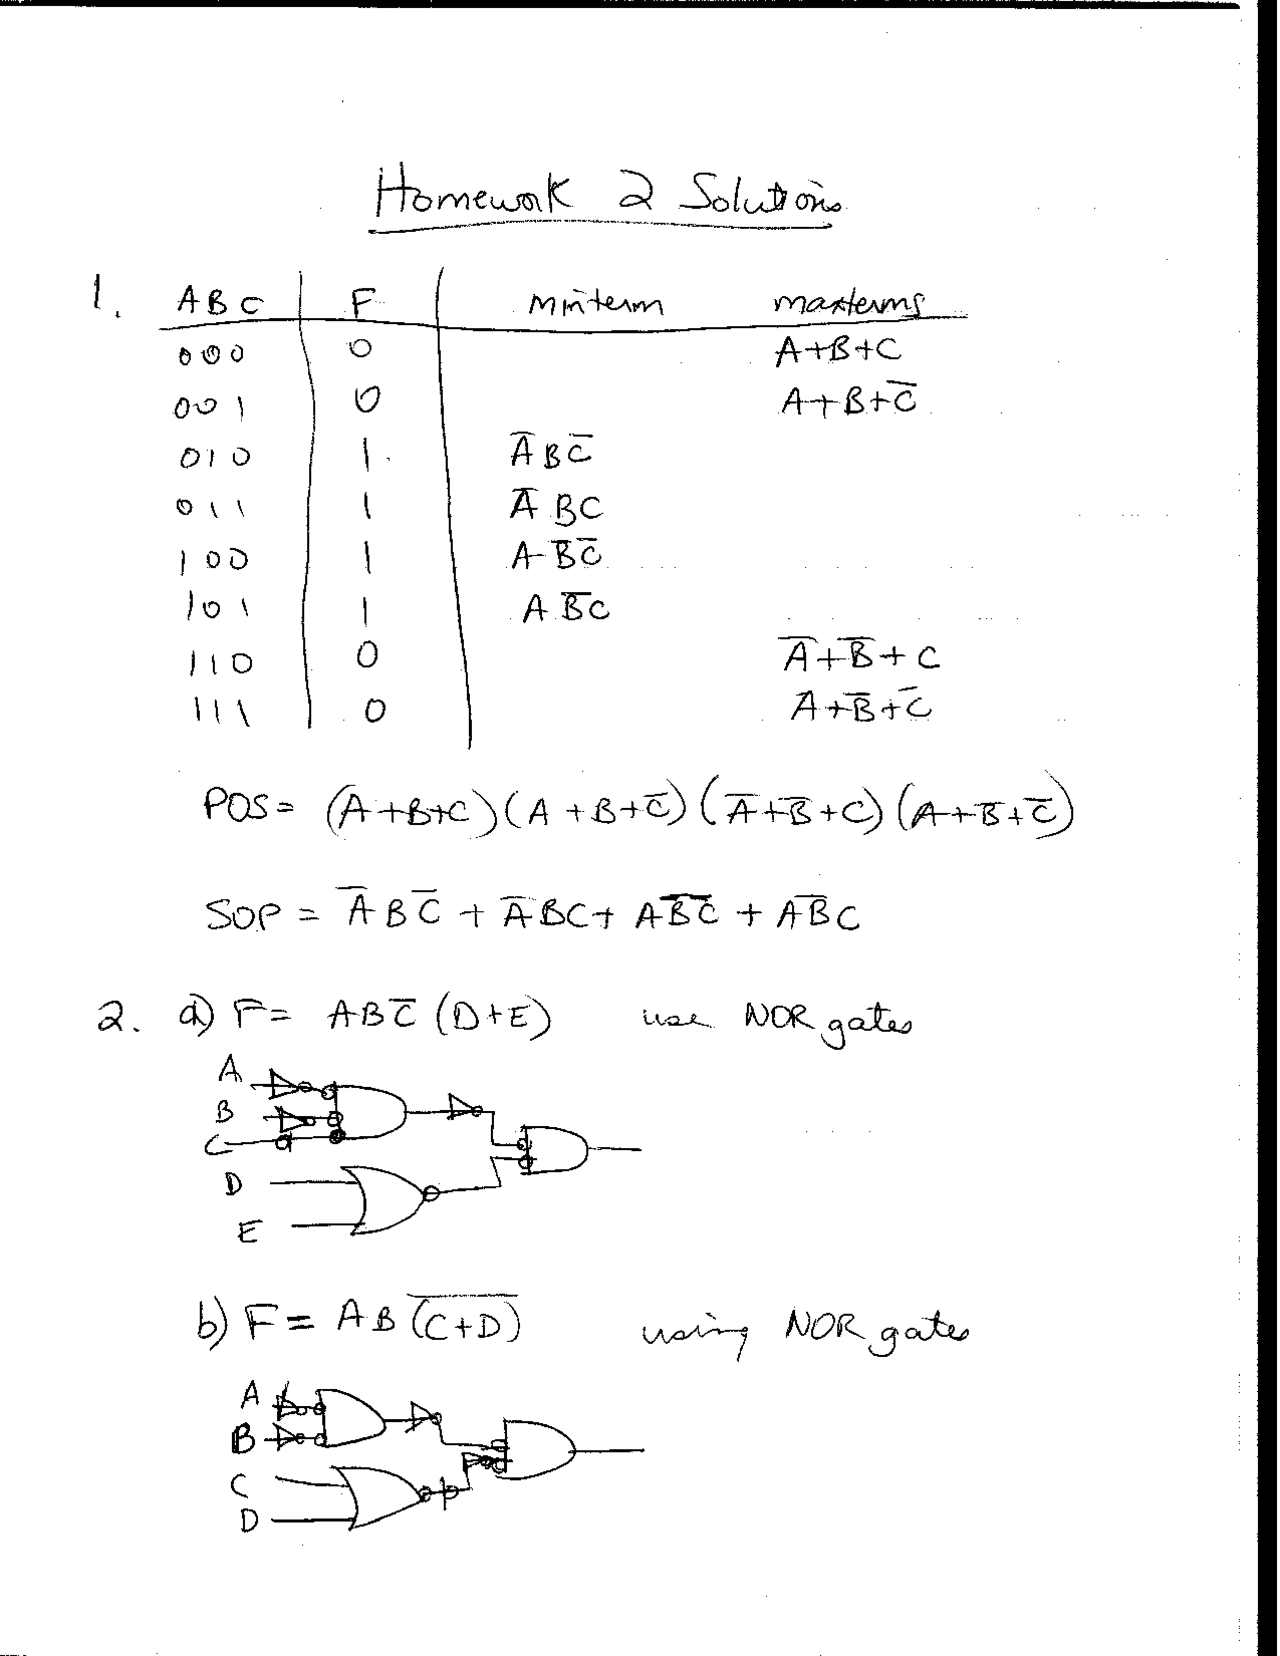 Homework 2 Solutions
1. A B C F Minterm maxterms
0 0 0 0 A+B+C
0 0 1 0 A+B+C̅
0 1 0 1 A̅BC̅
0 1 1 1 A̅BC
1 0 0 1 AB̅C̅
1 0 1 1 AB̅C
1 1 0 0 A̅+B̅+C
1 1 1 0 A̅+B̅+C̅
POS = (A+B+C)(A+B+C̅)(A̅+B̅+C)(A+B̅+C̅)
SOP = A̅BC̅ + A̅BC + AB̅C̅ + AB̅C
2. a) F = ABC̅(D+E) use NOR gates
A
B
C
D
E
b) F = AB(C+D)̅ using NOR gates
A
B
C
D